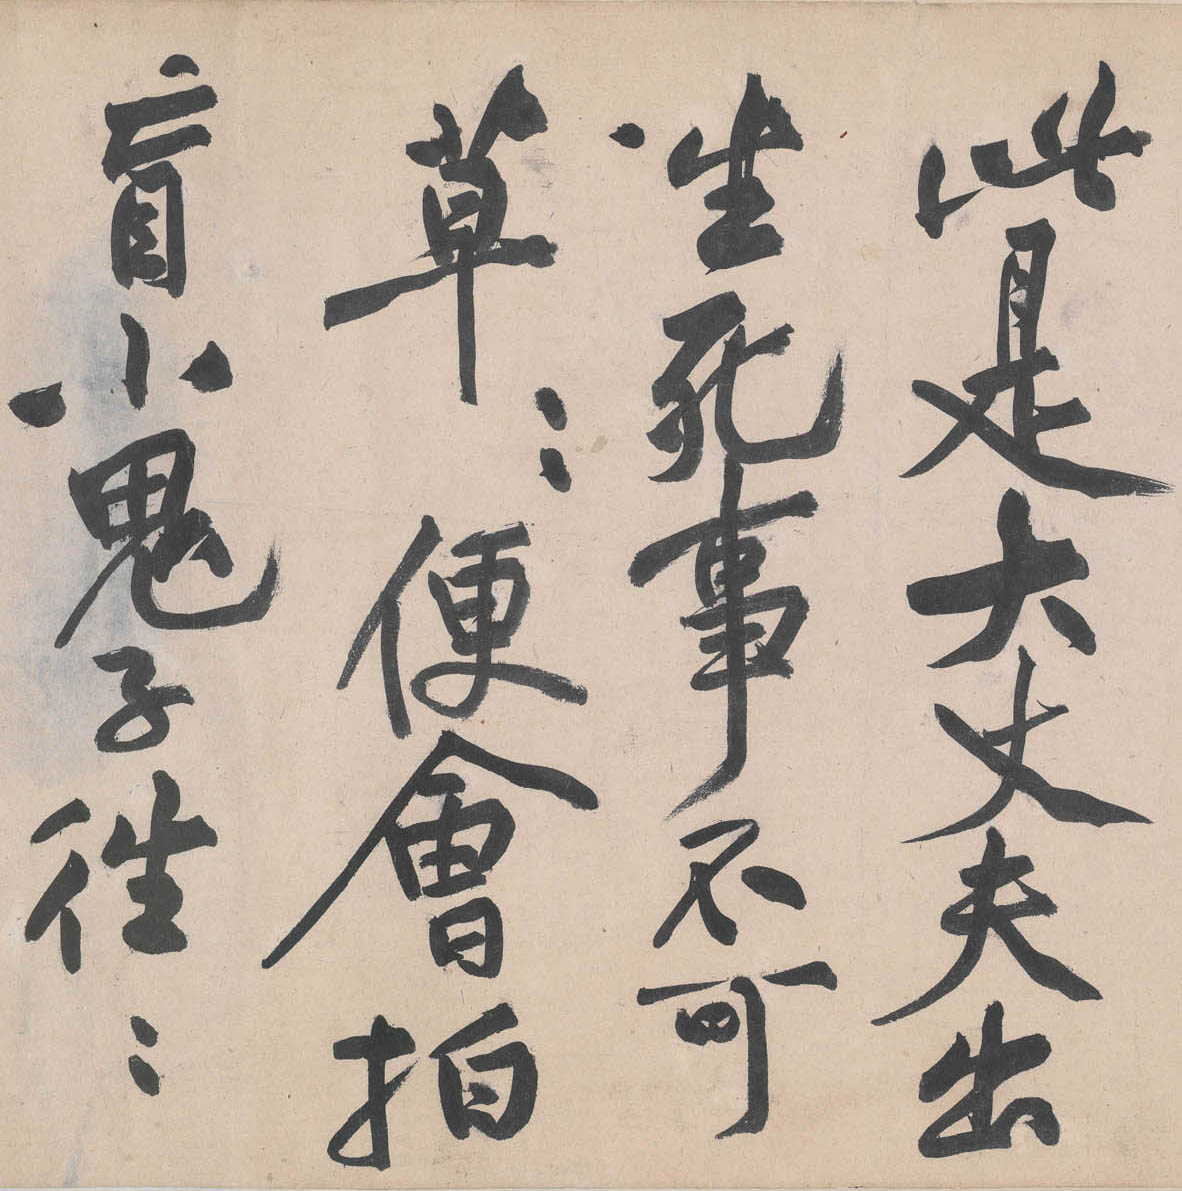 此是大丈夫出
生死事不可
草〻便會拍
盲小鬼子往〻